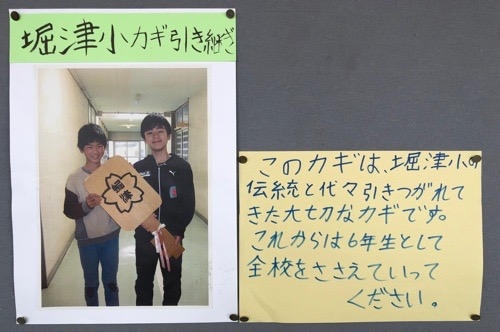 堀津小カギ引き継ぎ
堀津
このカギは、堀津小の
伝統と代々引きつがれて
きた大切なカギです。
これからは6年生として
全校をささえていって
ください。